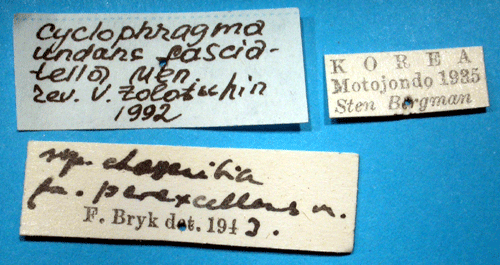 Cyclophragma
undans fascia-
tella Men.
rev. V. Zolotuhin
1992
KOREA
Motojondo 1935
Sten Bergman
ssp.
fa. perexcellens m.
F. Bryk det. 1943.